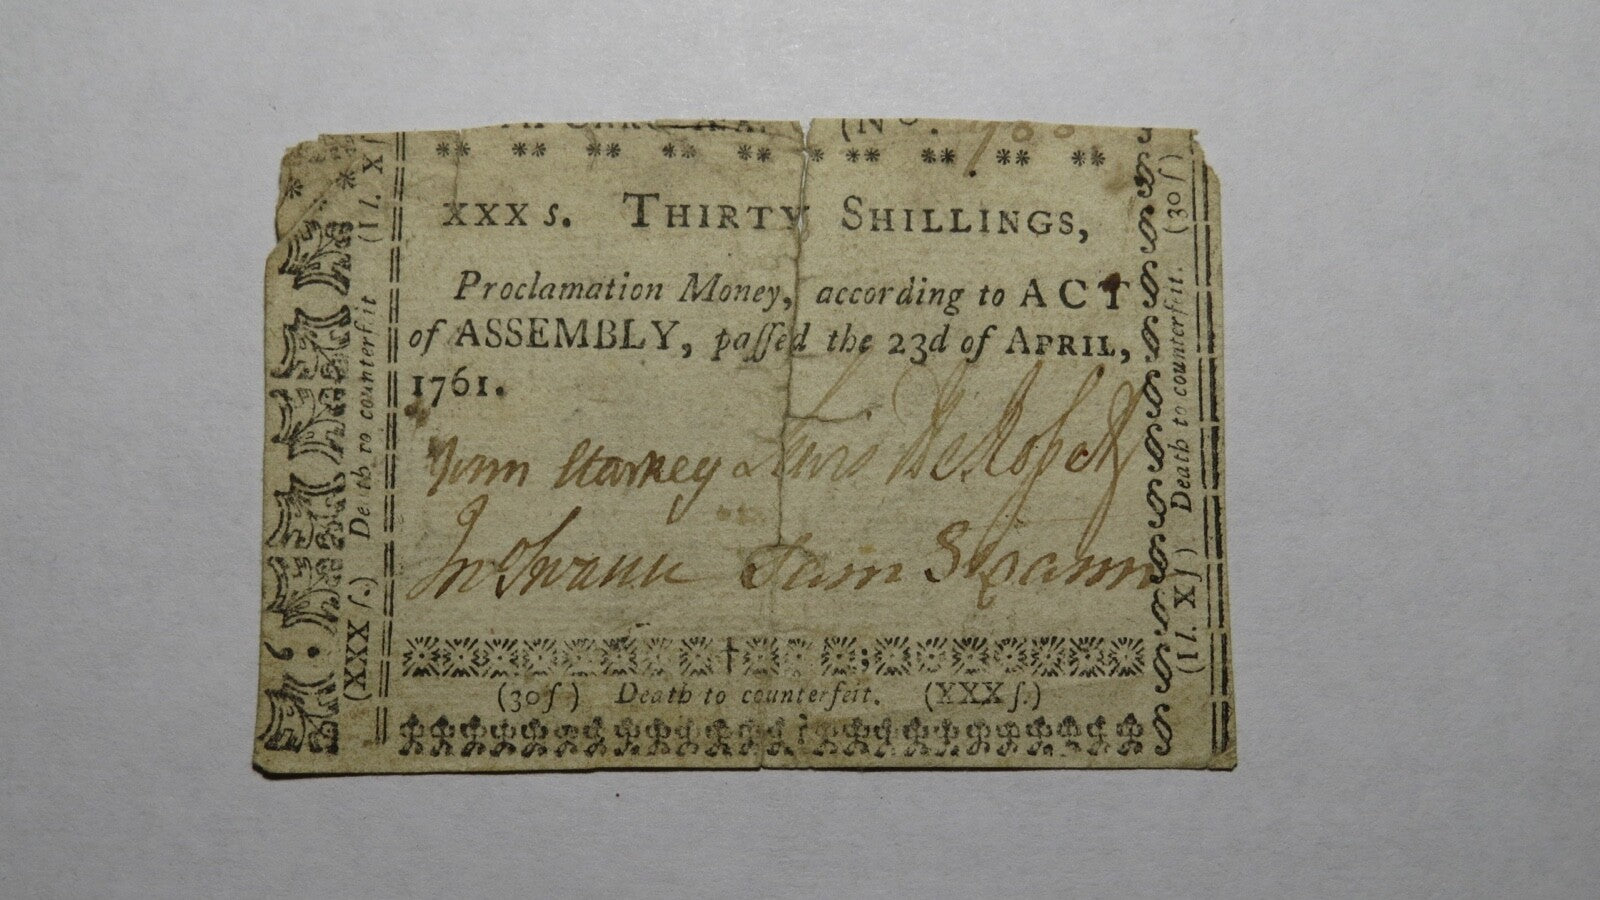 TH CAROLINA. (No.
XXX s. THIRTY SHILLINGS,
Proclamation Money, according to ACT
of ASSEMBLY, paſſed the 23d of APRIL,
1761.
Starkey Lewis DeRosset
Jn Swann Sam Swann
(30ſ) Death to counterfeit. (XXX ſ.)
(XXX ſ.) Death to counterfeit (1 l. X ſ
(1 l. X ſ) Death to counterfeit. (30ſ)